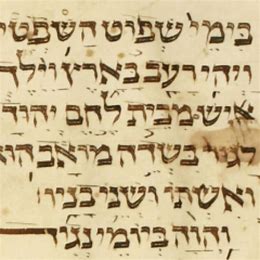 בימי שפוט השפטי
ויהי רעב בארץ וילך
איש מבית לחם יהוד
לגור בשדה מואב הוא
ואשתו ושני בניו
והוה ביומי נגיד